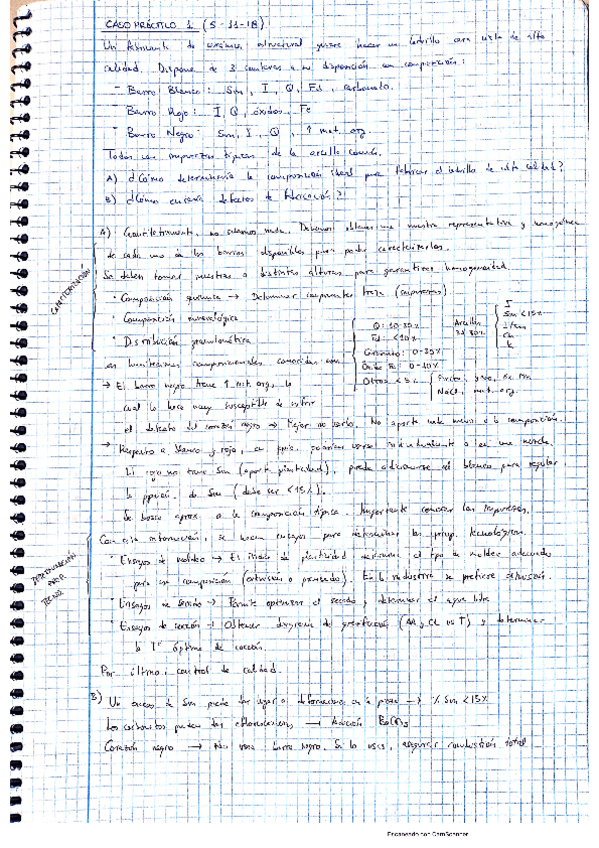 CASO PRÁCTICO 1 (5-11-18)
Un fabricante de cerámica estructural quiere hacer un ladrillo cara vista de alta
calidad. Dispone de 3 canteras a su disposición con composición:
- Barro Blanco: Sm, I, Q, Fd, carbonato.
- Barro Rojo: I, Q, óxidos Fe
- Barro Negro: Sm, I, Q, ↑ mat. org
Todas con impurezas típicas de la arcilla común.
A) ¿Cómo determinaría la composición ideal para fabricar el ladrillo de esta calidad?
B) ¿Cómo evitaría defectos de fabricación?
A) Cuantitativamente, no sabemos nada. Debemos obtener una muestra representativa y homogénea
de cada uno de los barros disponibles para poder caracterizarlos.
Se deben tomar muestras a distintas alturas para garantizar homogeneidad.
CARACTERIZACIÓN
· Composición química → Determinar componentes traza (impurezas)
· Composición mineralógica
· Distribución granulométrica
Q: 10-30%
Fd: <10%
Carbonato: 0-25%
0-10%
Otros <5%
Arcillas
I
Sm <15%
K
mat. org.
limitaciones composicionales conocidas
→ El barro negro tiene ↑ mat. org, lo
cual lo hace muy susceptible de sufrir
el defecto del corazón negro → Mejor no usarlo. No aporta nada nuevo a la composición.
→ Respecto a blanco y rojo, en ppio. podrían usarse individualmente o en una mezcla.
El rojo no tiene Sm (aporta plasticidad), puede adicionarse al blanco para regular
la ppción. de Sm (debe ser <15%).
Se busca aprox. a la composición típica. Importante conocer las impurezas.
Con esta información, se hacen ensayos para determinar las prop. tecnológicas.
· Ensayos de moldeo → El índice de plasticidad determina el tipo de moldeo adecuado
para esa composición (extrusión o prensado). En la industria se prefiere extrusión.
· Ensayos de secado → Permite optimizar el secado y determinar el agua libre
· Ensayos de cocción: Obtener diagrama de gresificación (AA y CL vs T) y determinar
la Tª óptima de cocción.
Por último: control de calidad.
B) Un exceso de Sm puede dar lugar a deformaciones en la pieza → % Sm <15%
Los carbonatos pueden dar eflorescencias → Adición
Corazón negro → No usar barro negro. Si lo usas, asegurar combustión total
Escaneado con CamScanner